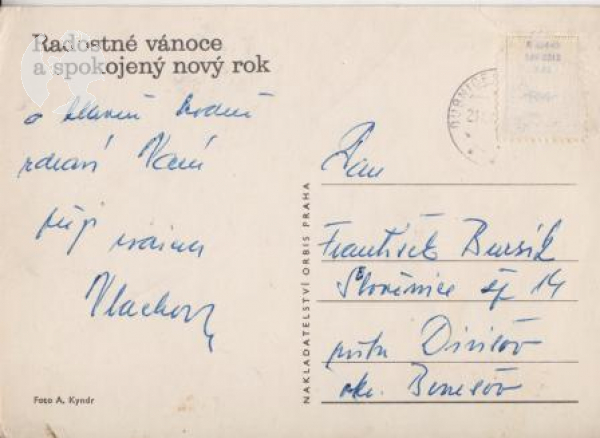 Radostné vánoce
a spokojený nový rok
a hlavně hodně
zdraví Vám
přeji
Vlachov
Foto A. Kyndr
NAKLADATELSTVÍ ORBIS PRAHA
Pan
František Bursík
čj 14
pošta Divišov
okr. Benešov